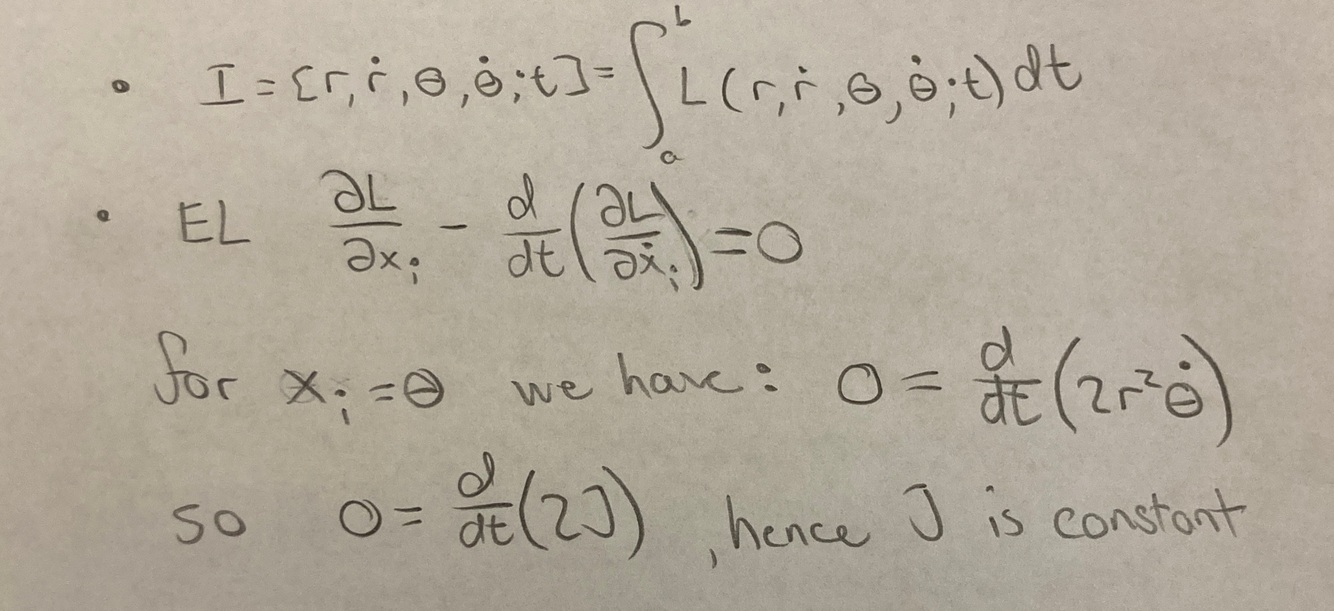 • I = [r, ṙ, θ, θ̇; t] = ∫_a^b L(r, ṙ, θ, θ̇; t) dt
• EL ∂L/∂xᵢ - d/dt (∂L/∂ẋᵢ) = 0
for xᵢ = θ we have: 0 = d/dt (2r²θ̇)
so 0 = d/dt (2J), hence J is constant